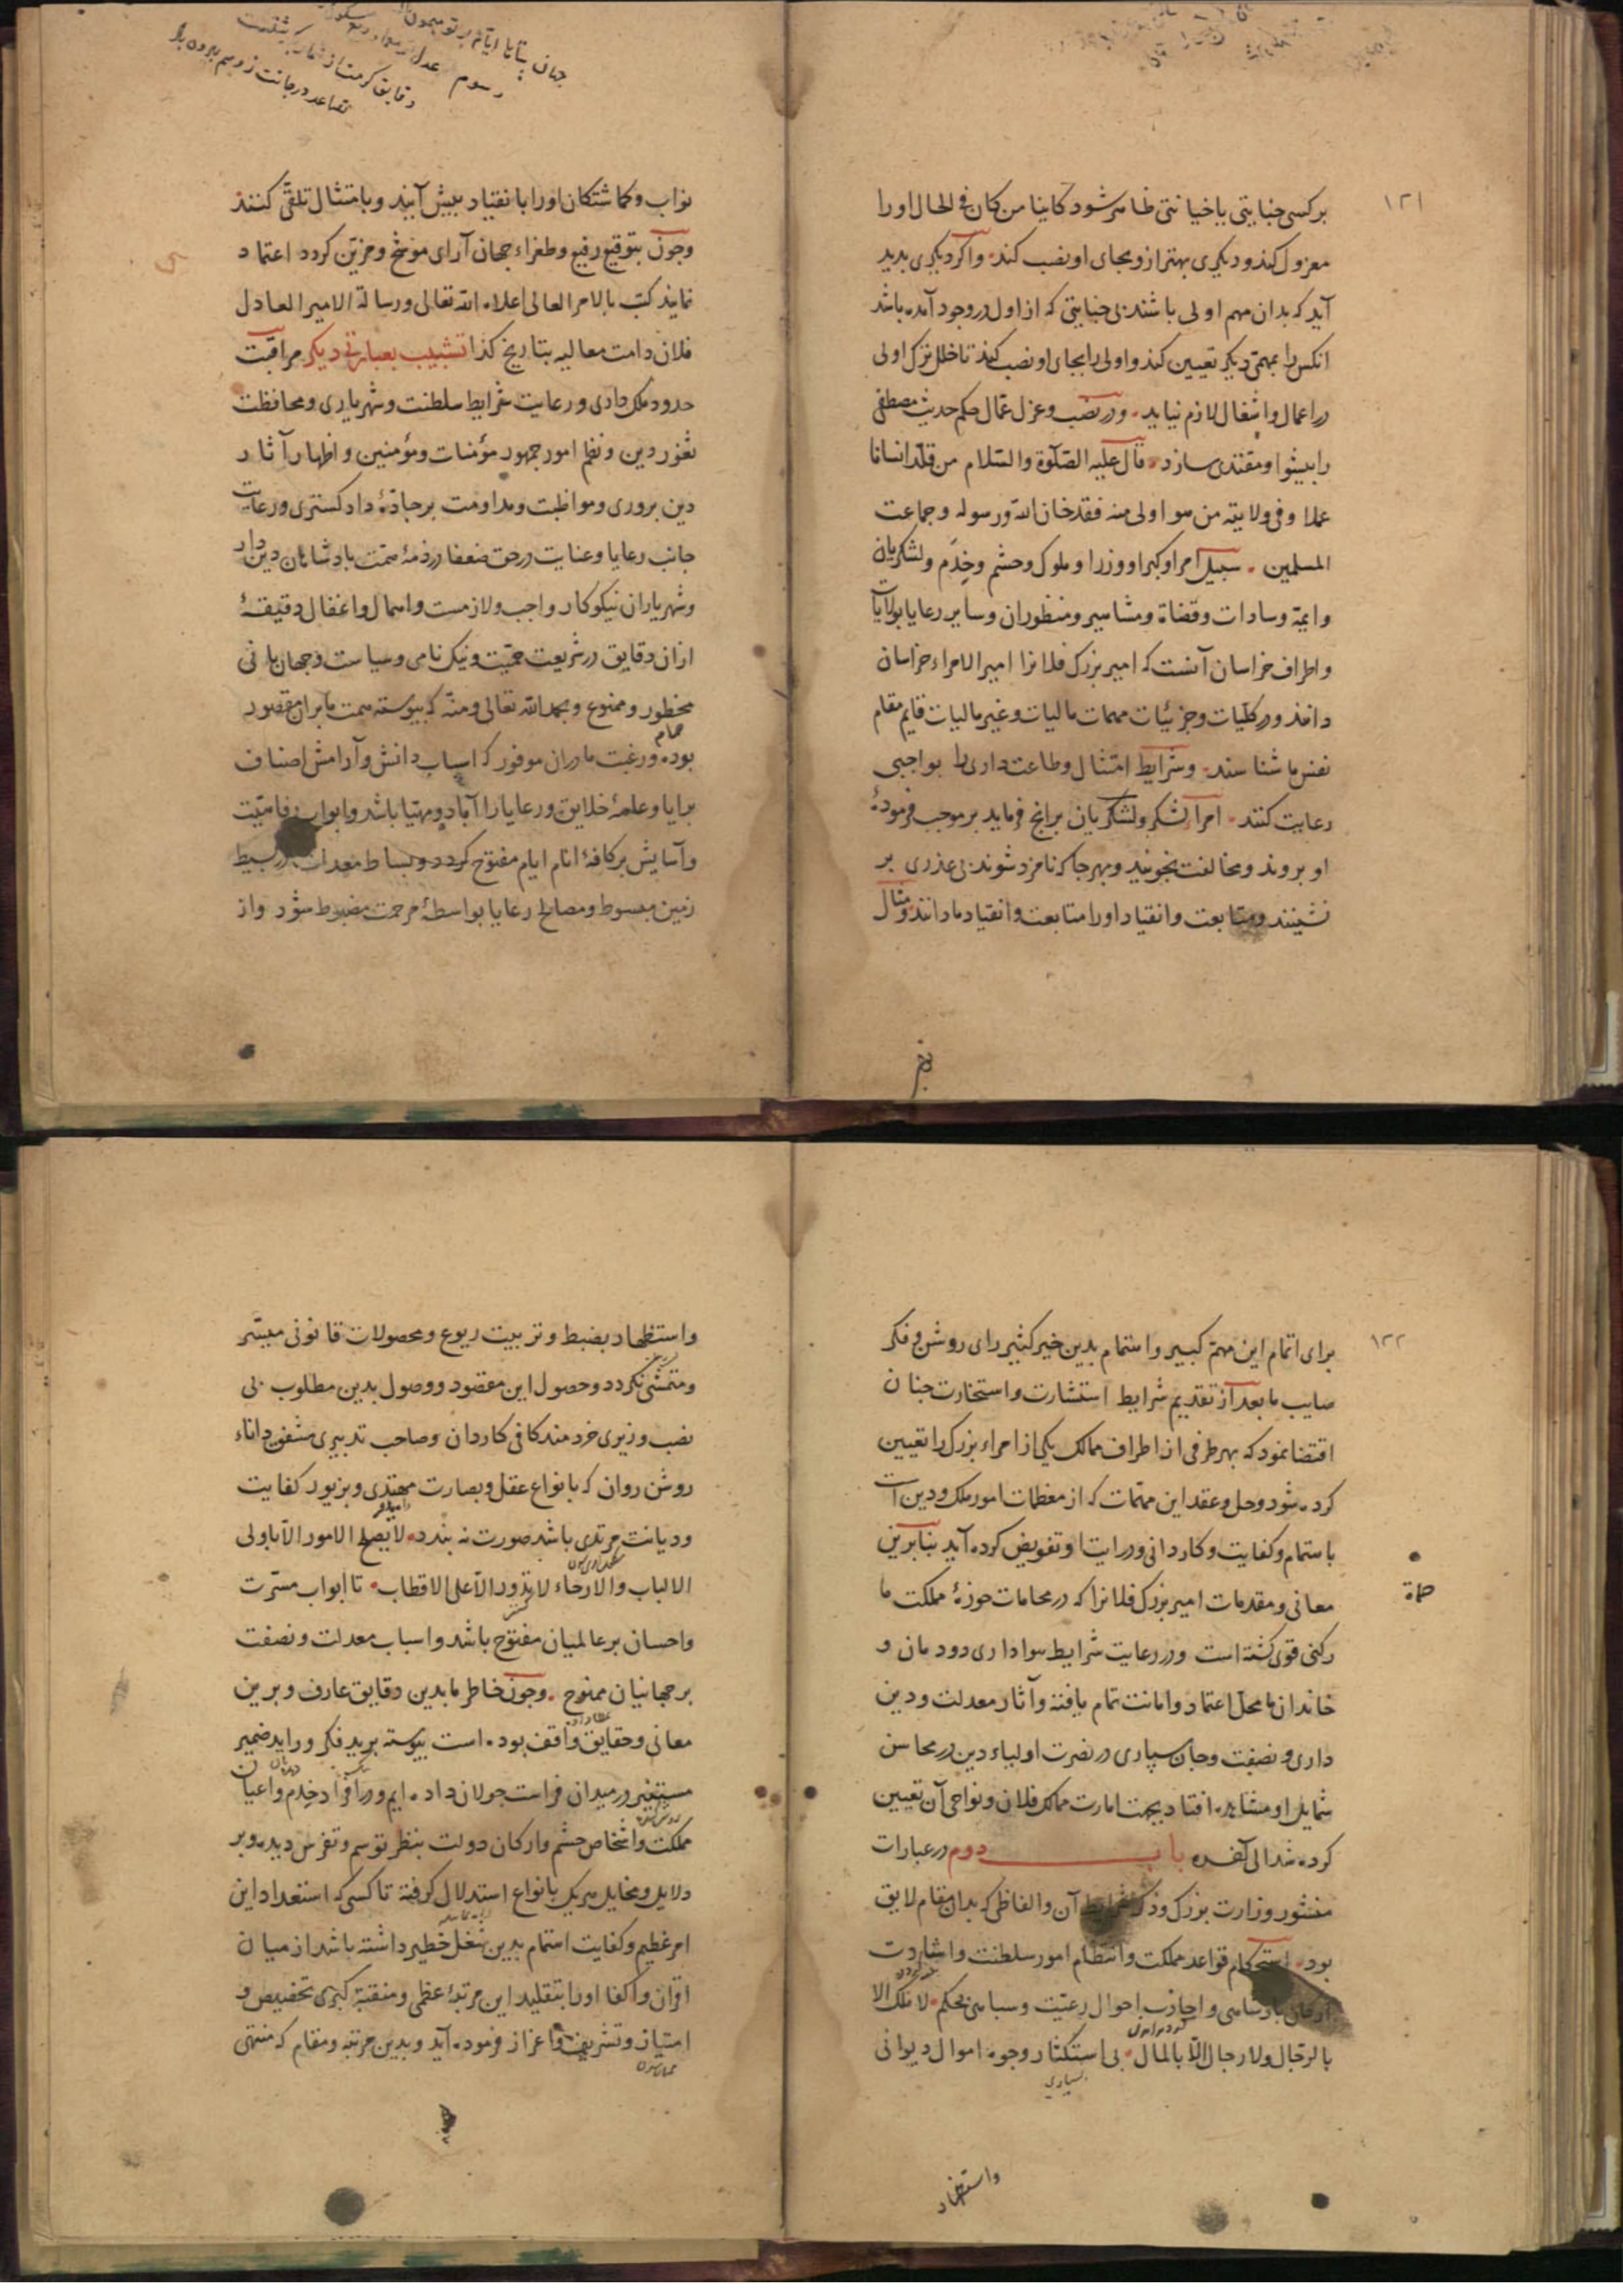 ۱۲۱
بر کسی جنایتی یا خیانتی ظاهر شود کاینا من کان فی الحال او را
معزول کند و دیکری بهتر ازو بجای او نصب کند واکر دیکری بدید
آید که بدان مهم اولی باشد بی جنایتی که از اول در وجود آمده باشد
انکس را بمهمی دیکر تعیین کند و اولی را بجای او نصب کند تا خلل ترک اولی
در اعمال واشغال لازم نیاید ودر نصب وعزل عمال حکم حدیث مصطفی
را بیشوا ومقتدی سازد قال علیه الصلوة والسلام من قلد انسانا
عملا وفی ولایته من هو اولی منه فقد خان الله ورسوله وجماعت
المسلمین سبیل امرا وکبرا ووزرا وملوک وحشم وخدم ولشکریان
وایمه وسادات وقضاة ومشاهیر ومنظوران وسایر رعایا بولایات
واطراف خراسان آنست که امیر بزرک فلانرا امیر الامراء خراسان
دانند ودر کلیات وجزئیات مهمات مالیات وغیر مالیات قایم مقام
نفس ما شناسند وشرایط امتثال وطاعت داری را بواجبی
رعایت کنند امراء لشکر ولشکریان برانج فرماید بر موجب فرمودهٔ
او بروند ومخالفت نجویند وبهر جا که نامزد شوند بی عذری بر
نشینند ومتابعت وانقیاد او را متابعت وانقیاد ما دانند ومثال
نواب وکماشتکان او را بانقیاد بیش آیند وبامتثال تلقی کنند
وجون بتوقیع رفیع وطغراء جهان آرای موشح ومزین کردد اعتماد
نمایند کتب بالامر العالی اعلاه الله تعالی ورسالة الامیر العادل
فلان دامت معالیه بتاریخ کذا تشبیب بعبارتی دیکر مراقبت
حدود ملک داری ورعایت شرایط سلطنت وشهریاری ومحافظت
ثغور دین ونظم امور جمهور مؤمنات ومؤمنین واظهار آثار
دین بروری ومواظبت ومداومت بر جادهٔ داد کستری ورعایت
جانب رعایا وعنایت در حق ضعفا در ذمهٔ همت بادشاهان دین دار
وشهریاران نیکوکار واجب ولازمست واهمال واغفال دقیقهٔ
ازان دقایق در شریعت حمیت ونیک نامی وسیاست وجهان بانی
محظور وممنوع وبحمد الله تعالی ومنه که بیوسته همت ما بران مقصور
بوده ورغبت ما دران موفور که اسباب دانش وآرامش اصناف
برایا وعامهٔ خلایق ورعایا را آباد ومهیا باشد وابواب رفاهیت
وآسایش بر کافهٔ انام ایام مفتوح کردد وبساط معدلت در بسیط
زمین مبسوط ومصالح رعایا بواسطهٔ مرحمت مضبوط شود واز
۱۲۲
برای اتمام این مهم کبیر واهتمام بدین خیر کثیر رای روشن وفکر
صایب ما بعد از تقدیم شرایط استشارت واستخارت جنان
اقتضا نمود که بهر طرفی از اطراف ممالک یکی از امراء بزرک را تعیین
کرده شود وحل وعقد این مهمات که از معظمات امور ملک ودین است
باهتمام وکفایت وکاردانی ودرایت او تفویض کرده آید بنابرین
معانی ومقدمات امیر بزرک فلانرا که در محامات حوزهٔ مملکت ما
رکنی قوی کشته است ودر رعایت شرایط هواداری دودمان و
خاندان ما محل اعتماد وامانت تمام یافته وآثار معدلت ودین
داری ونصفت وجان سپاری در نصرت اولیاء دین در محاسن
شمایل او مشاهده افتاد بجهت امارت ممالک فلان ونواحی آن تعیین
کرده شد الی آخره باب دوم در عبارات
منشور وزارت بزرک وذکر شرایط آن والفاظی که بدان مقام لایق
بود استحکام قواعد مملکت وانتظام امور سلطنت واشادت
ارکان بادشاهی و احوال رعیت وسباهی بحکم لا ملک الا
بالرجال ولا رجال الا بالمال بی استکثار وجوه اموال دیوانی
بسیاری
واستظهار
واستظهار بضبط وتربیت ریوع ومحصولات قانونی میسر
ومتمشی نکردد وحصول این مقصود ووصول بدین مطلوب بی
نصب وزیری خردمند کافی کاردان وصاحب تدبیری مشفق داناء
روشن روان که بانواع عقل وبصارت مهتدی وبزیور کفایت
ودیانت مرتدی باشد صورت نه بندد لا یصلح الامور الا باولی
الالباب والارحاء لا تدور الا علی الاقطاب تا ابواب مسرت
واحسان بر عالمیان مفتوح باشد واسباب معدلت ونصفت
بر جهانیان ممنوح وجون خاطر ما بدین دقایق عارف وبرین
معانی وحقایق واقف بوده است بیوسته برید فکر وراید ضمیر
در میدان فراست جولان داده ایم ودر افراد خدم واعیان
مملکت واشخاص حشم وارکان دولت بنظر توسم وتفرس دیده وبر
دلایل ومخایل هر یک بانواع استدلال کرفته تا کسی که استعداد این
امر عظیم وکفایت اهتمام بدین شغل خطیر داشته باشد از میان
اقران واکفا او را بتقلید این مرتبهٔ عظمی ومنقبهٔ کبری تخصیص و
امتیاز وتشریف واعزاز فرموده آید وبدین مرتبه ومقام که منتهی